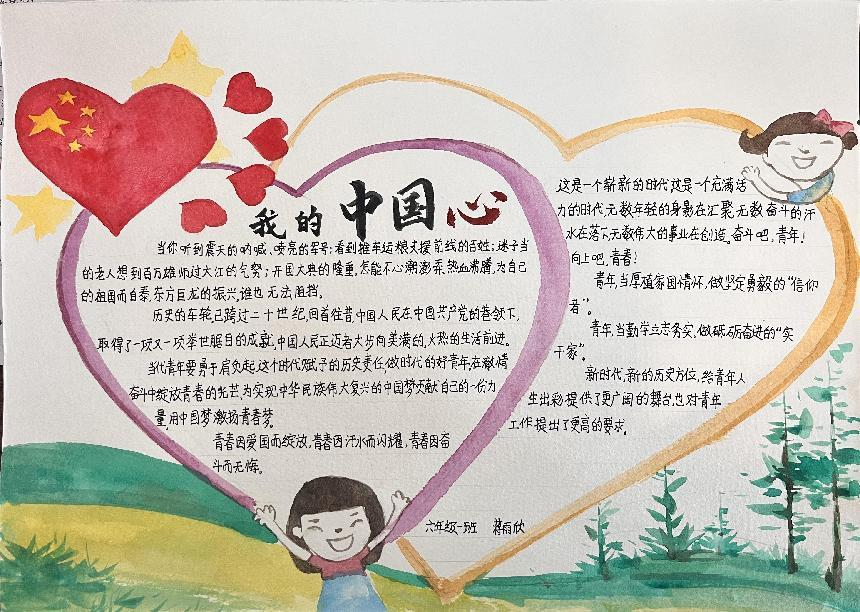 我的中国心
当你听到震天的呐喊、嘹亮的军号;看到推车运粮支援前线的百姓;逃子当
的老人想到百万雄师过大江的气势;开国大典的隆重,怎能不心潮澎湃、热血沸腾,为自己
的祖国而自泰,东方巨龙的振兴,谁也无法阻挡。
历史的车轮已跨过二十世纪,回首往昔中国人民在中国共产党的卷领下,
取得了一项又一项举世瞩目的成就,中国人民正迈着大步向美满的、火热的生活前进。
当代青年要勇于肩负起这个时代赋予的历史责任,做时代的好青年,在激情
奋斗中绽放青春的光芒为实现中华民族伟大复兴的中国梦贡献自己的一份力
量,用中国梦激扬青春梦。
青春因爱国而绽放,青春因汗水而闪耀,青春因奋
斗而无悔。
这是一个崭新的时代这是一个充满活
力的时代,无数年轻的身影在汇聚,无数奋斗的汗
水在落下,无数伟大的事业在创造。奋斗吧,青年!
向上吧,青春!
青年,当厚植家国情怀,做坚定勇毅的“信仰
者”。
青年,当勤学立志务实,做砥砺奋进的“实
干家”。
新时代,新的历史方位,给青年人
生出彩提供了更广阔的舞台也对青年
工作提出了更高的要求。
六年级一班 蒋雨欣